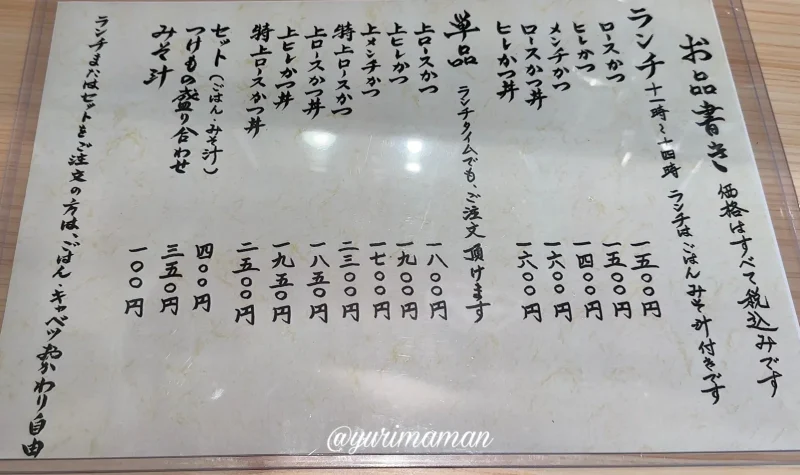 お品書き 価格はすべて税込みです
ランチ 十一時~十四時 ランチはごはんみそ汁付きです
ロースかつ 一五〇〇円
ヒレかつ 一五〇〇円
メンチかつ 一四〇〇円
ロースかつ丼 一六〇〇円
ヒレかつ丼 一六〇〇円
単品 ランチタイムでも、ご注文頂けます
上ロースかつ 一八〇〇円
上ヒレかつ 一九〇〇円
上メンチかつ 一七〇〇円
特上ロースかつ 二三〇〇円
上ロースかつ丼 一八五〇円
上ヒレかつ丼 一九五〇円
特上ロースかつ丼 二五〇〇円
セット(ごはん・みそ汁) 四〇〇円
つけもの盛り合わせ 三五〇円
みそ汁 一〇〇円
ランチまたはセットをご注文の方は、ごはん・キャベツおかわり自由
@yurimaman